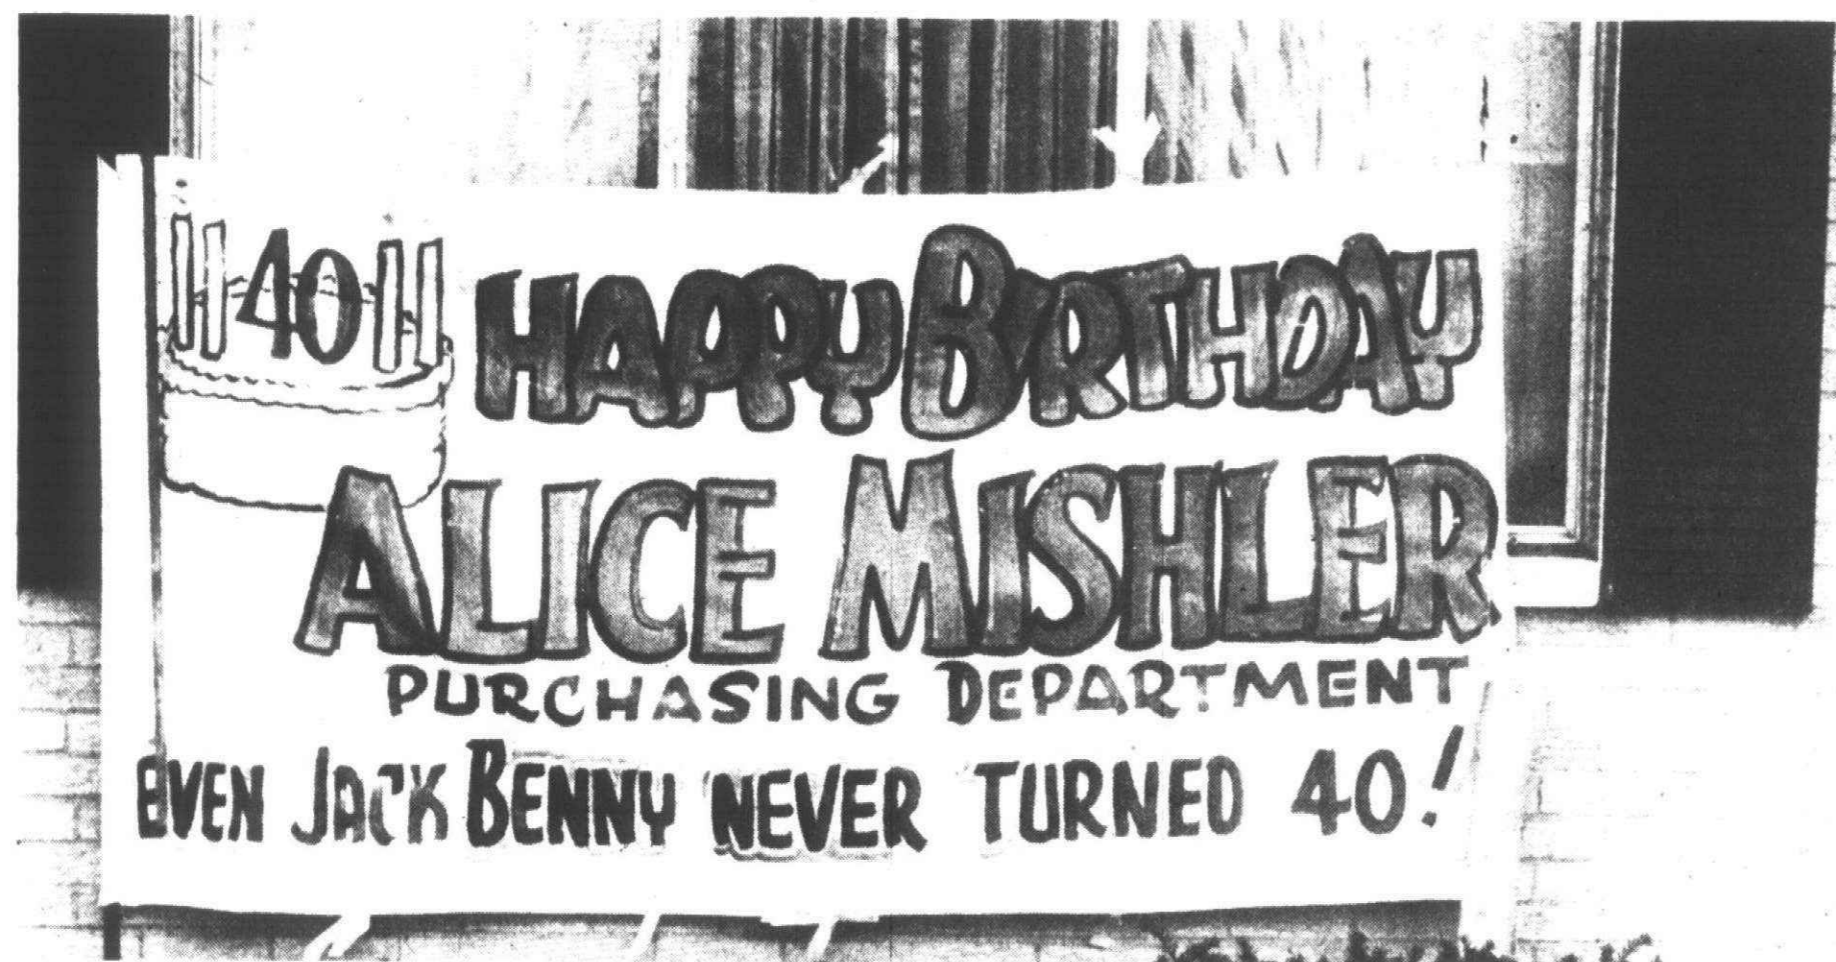 40
HAPPY BIRTHDAY
ALICE MISHLER
PURCHASING DEPARTMENT
EVEN JACK BENNY NEVER TURNED 40!